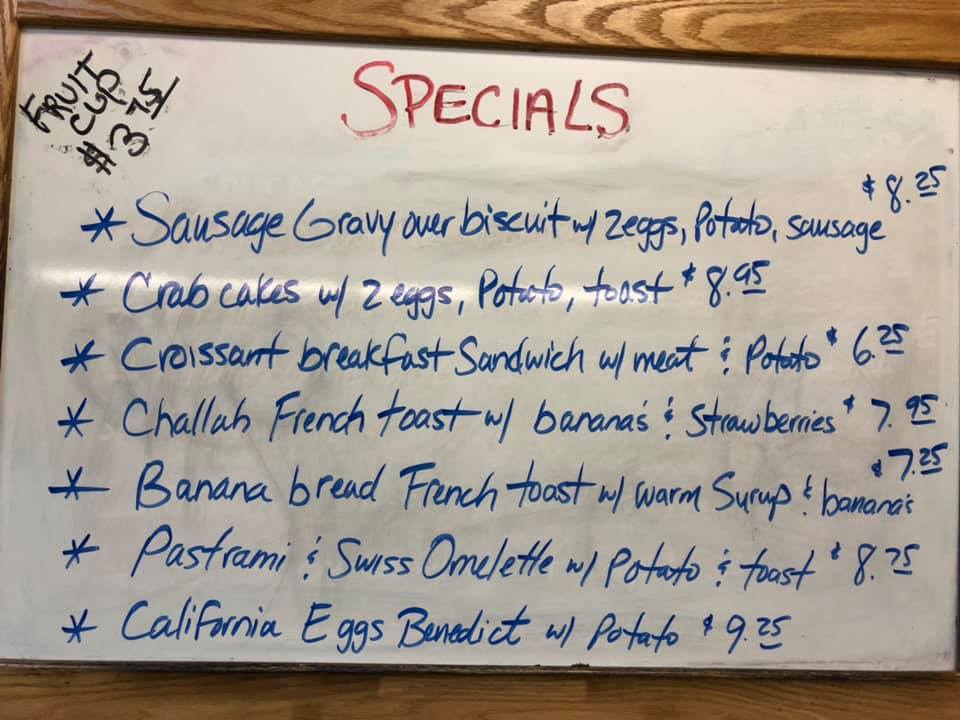 FRUIT
CUP
$3.75/
SPECIALS
* Sausage Gravy over biscuit w/ 2 eggs, Potato, sausage $8.25
* Crab cakes w/ 2 eggs, Potato, toast $8.95
* Croissant breakfast Sandwich w/ meat & Potato $6.25
* Challah French toast w/ banana's & Strawberries $7.95
* Banana bread French toast w/ warm Surup & banana's $7.25
* Pastrami & Swiss Omelette w/ Potato & toast $8.75
* California Eggs Benedict w/ Potato $9.25